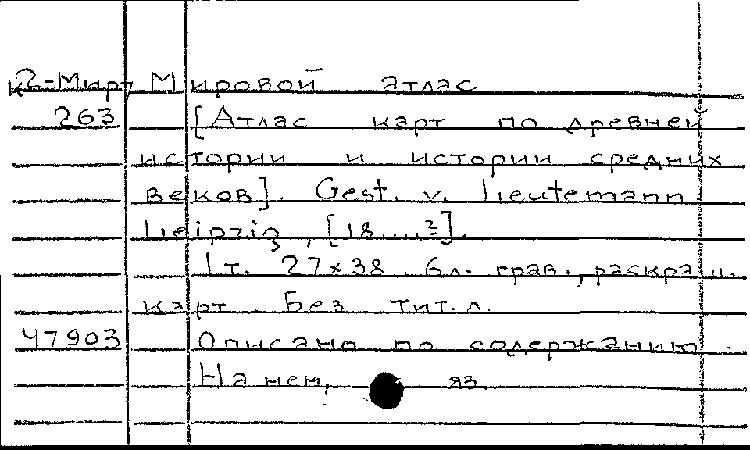 К2-Мир, Мировой атлас
263 [Атлас карт по древней
истории и истории средних
веков]. Gest. v. Leutemann
Leipzig, [18...?].
1 т. 27x38 6л. грав., раскраш.
карт. Без тит. л.
47903 Описано по содержанию.
На нем. яз.